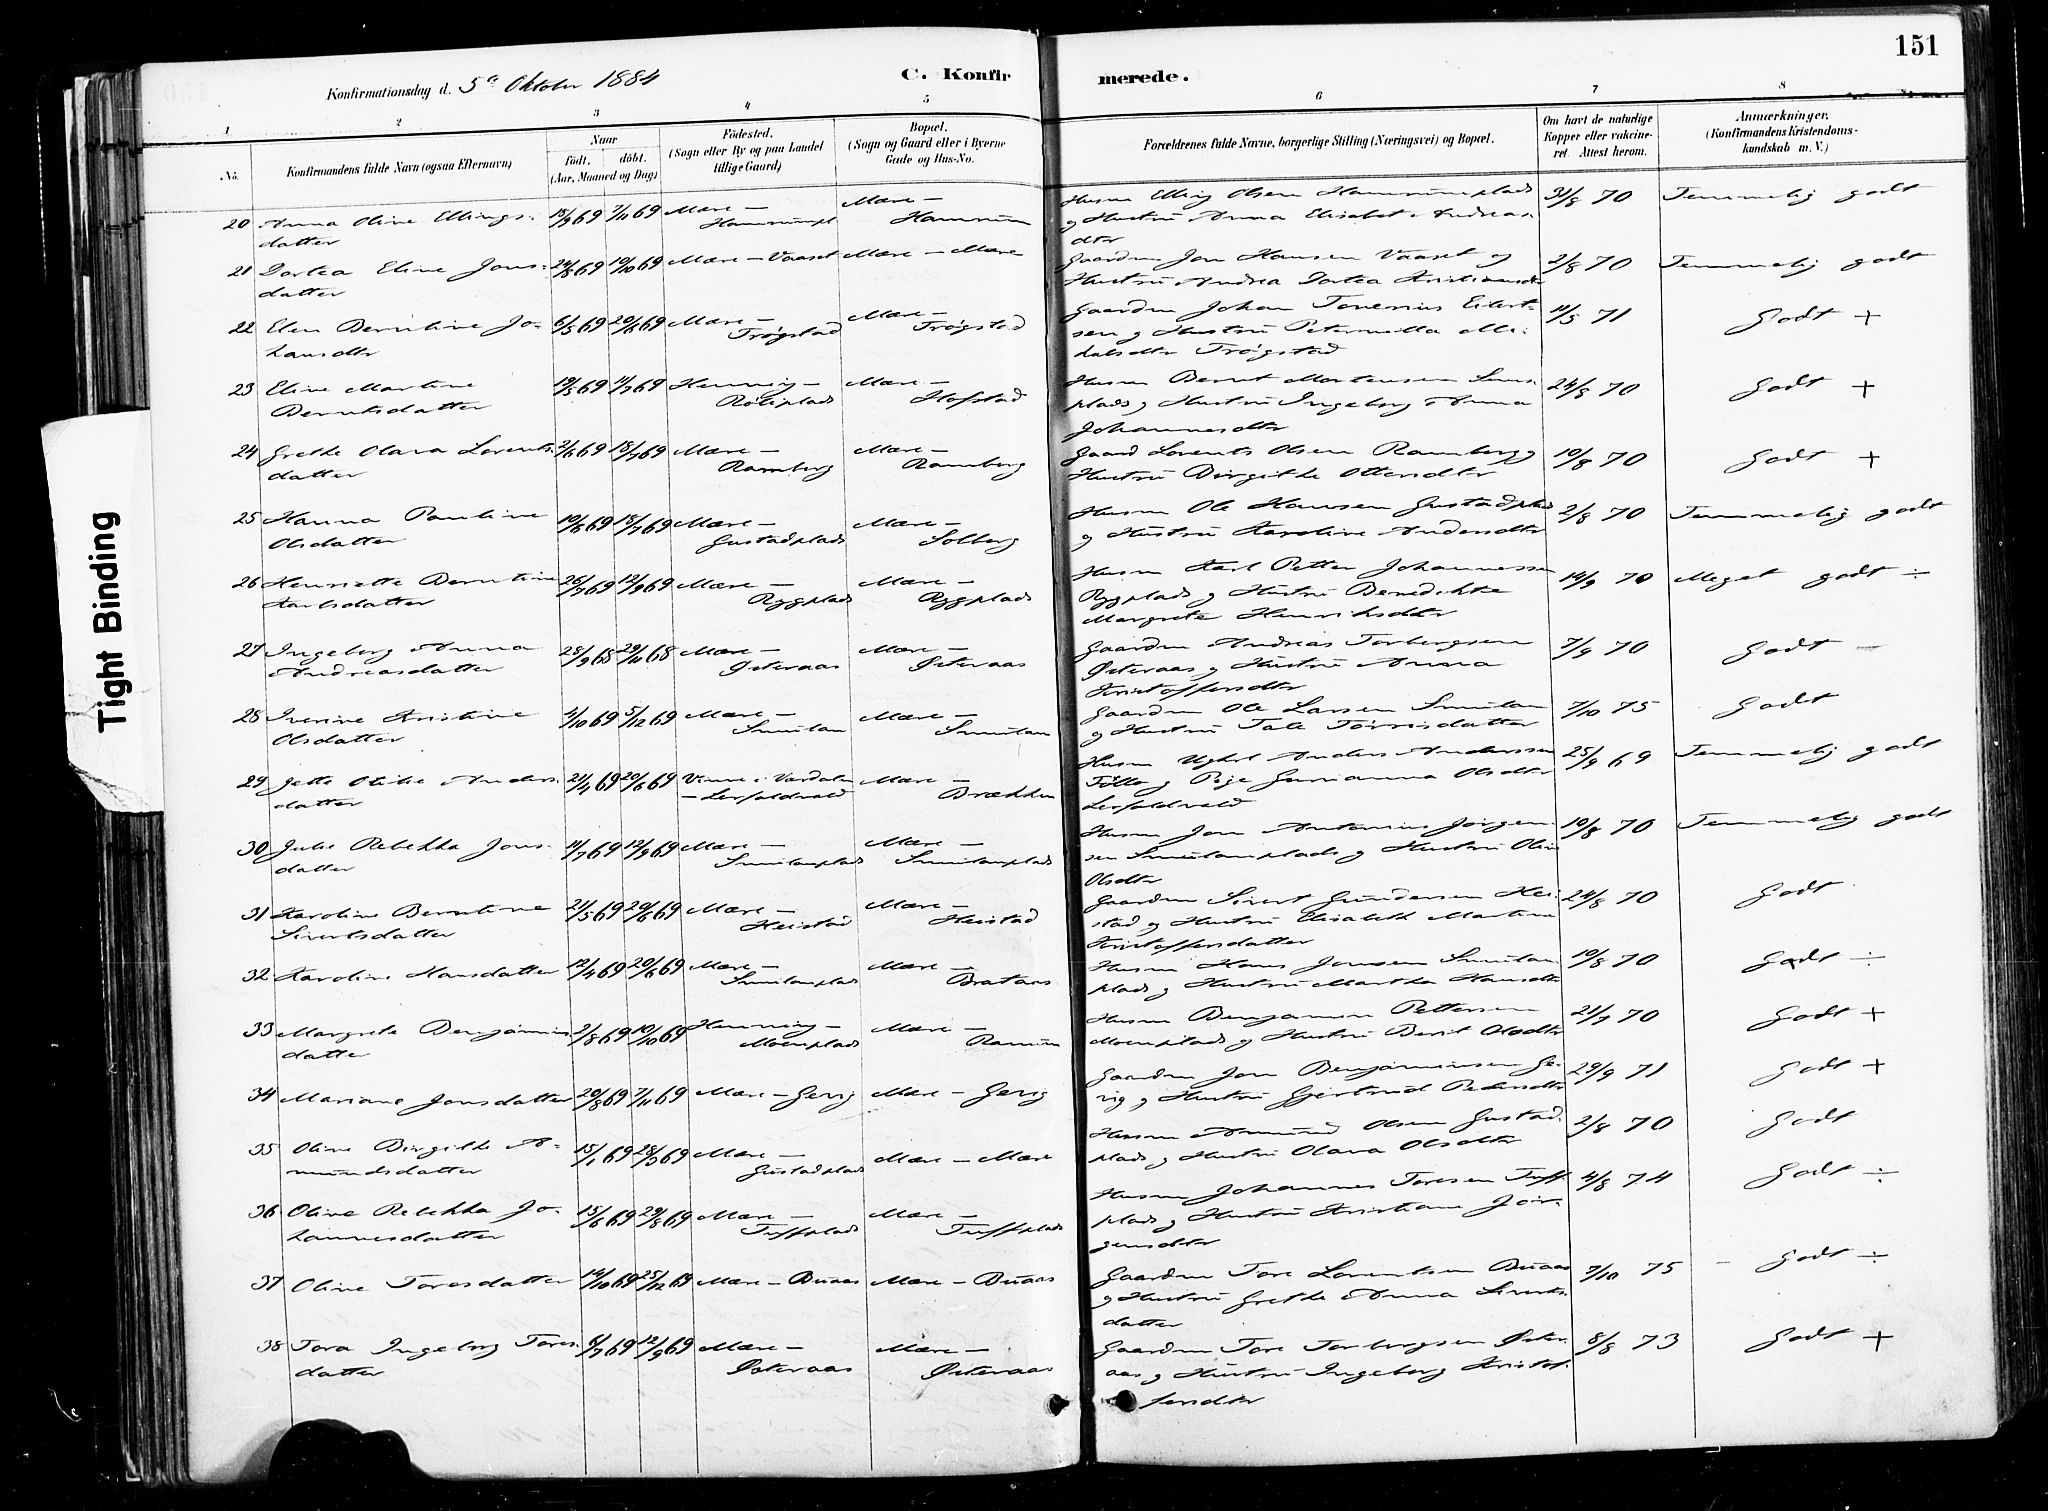 151
Konfirmationsdag d. 5te Oktober 1884
C. Konfirmerede.
1 2 3 4 5 6 7 8
No. Konfirmandens fulde Navn (ogsaa Efternavn) Naar Födt. döbt. (Aar, Maaned og Dag) Födested. (Sogn eller By og paa Landet tillige Gaard) Bopæl. (Sogn og Gaard eller i Byerne Gade og Hus-No. Forældrenes fulde Navne, borgerlige Stilling (Næringsvei) og Bopæl. Om havt de naturlige Kopper eller vakcineret. Attest herom. Anmærkninger. (Konfirmandens Kristendomskundskab m. V.)
20 Anna Oline Ellingsdatter 18/9 69 7/11 69 Mære – Hamrumpl Mære – Hamrum Husm Elling Olsen Hamrumplads og Hustru Anna Elisabet Andreasdtr 31/8 70 Temmelig godt
21 Dortea Eline Jonsdatter 24/8 69 10/10 69 Mære – Vaaset Mære – Mære Gaardm Jon Hansen Vaaset og Hustru Andrea Dortea Kristiansdtr 2/8 70 Temmelig godt
22 Elen Berntine Johansdtr 6/5 69 20/6 69 Mære – Trøgstad Mære – Trøgstad Gaardm Johan Tonerius Eilertsen og Hustru Peternilla Mikalsdtr Trøgstad 11/5 71 Godt +
23 Eline Martine Berntsdatter 19/5 69 11/7 69 Henning – Røliplads Mære – Hofstad Husm Bernt Mortensen plads og Hustru Ingeborg Anna Johannesdtr 24/8 70 Godt +
24 Grethe Olava Lorentsdatter 2/6 69 18/7 69 Mære – Ramberg Mære – Ramberg Gaard Lorents Olsen Ramberg og Hustru Birgitte Ottersdtr 10/8 70 Godt +
25 Hanna Pauline Olsdatter 10/6 69 18/7 69 Mære – Gustadplads Mære – Solberg Husm Ole Hansen Gustadplads og Hustru Karoline Andersdtr 2/8 70 Temmelig godt
26 Henriette Berntine Karlsdatter 26/7 69 12/9 69 Mære – Rygplads Mære – Rygplads Husm Karl Petter Johannessen Rygplads og Hustru Benedikte Margrete Henriksdtr 14/9 70 Meget godt ÷
27 Ingeborg Anna Andreasdatter 28/9 68 29/11 68 Mære – Østeraas Mære – Østeraas Gaardm Andreas Torbergsen Østeraas og Hustru Anna Kristoffersdtr 7/9 70 Godt –
28 Iverine Kristine Olsdatter 4/10 69 5/12 69 Mære – Smulan Mære – Smulan Gaardm Ole Larsen Smulan og Hustru Tale 7/10 75 Godt
29 Jette Olise Andersdatter 21/4 69 20/6 69 Vinne i Værdalen – Leifaldvald Mære – Brækken Husm Ugkrl Anders Anderssen og Pige Gurianna Olsdtr Leifaldvald 25/9 69 Temmelig godt
30 Julie Rebekka Jonsdatter 11/7 69 12/9 69 Mære – Smulanplads Mære – Smulanplads Husm Jon Antonius Jørgensen Smulanplads og Hustru Oline Olsdtr 10/8 70 Temmelig godt
31 Karoline Berntine Sivertsdatter 21/5 69 20/6 69 Mære – Heistad Mære – Heistad Gaardm Sivert Gundersen Heistad og Hustru Elisabeth Martine Kristoffersdatter 24/8 70 Godt
32 Karoline Hansdatter 12/4 69 20/6 69 Mære – Smulanplads Mære – Brataas Husm Hans Jonsen Smulanplads og Hustru Martha Hansdtr 10/8 70 Godt ÷
33 Margrete Benjaminsdatter 2/8 69 10/10 69 Henning – Moenplads Mære – Husm Benjamin Pettersen Moenplads og Hustru Berit Olsdtr 21/7 70 Godt +
34 Mariane Jonsdatter 20/8 69 7/11 69 Mære – Gevig Mære – Gevig Gaardm Jon Benjaminsen Gevig og Hustru Gjertrud Pedersdtr 29/9 71 Godt +
35 Oline Birgitte Amundsdatter 15/1 69 28/3 69 Mære – Gustadplads Mære – Mære Husm Amund Olsen Gustadplads og Hustru Olava Olsdtr 2/8 70 Godt
36 Oline Rebekka Johannesdatter 15/6 69 29/8 69 Mære – Tuffplads Mære – Tuffplads Husm Johannes Toresen Tuffplads og Hustru Kristiane Jørgensdtr 4/8 74 Godt ÷
37 Oline Toresdatter 14/10 69 25/12 69 Mære – Buaas Mære – Buaas Gaardm Tore Lorentsen Buaas og Hustru Grethe Anna Sivertsdatter 7/10 75 – Godt ÷
38 Tora Ingeborg Toresdatter 6/7 69 12/9 69 Mære – Østeraas Mære – Østeraas Gaardm Tore Torbergsen Østeraas og Hustru Ingeborg Kristoffersdtr 8/8 73 Godt +
Tight Binding